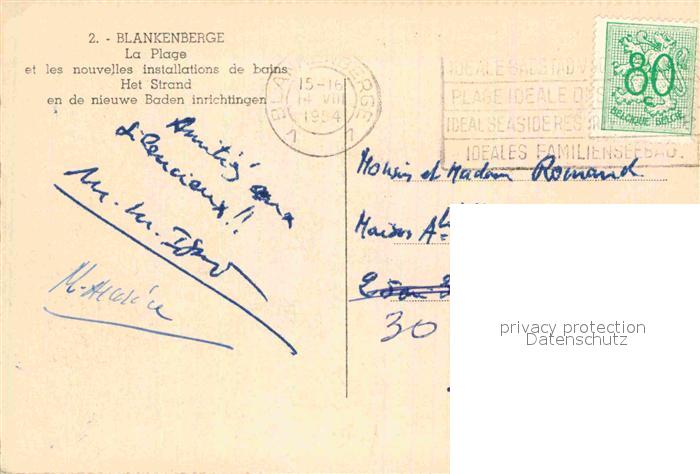 2. - BLANKENBERGE
La Plage
et les nouvelles installations de bains
Het Strand
en de nieuwe Baden inrichtingen
BLANKENBERGE
15-16
14 VIII
1954
1 1
IDEALE BADSTAD V
PLAGE IDEALE DES
IDEAL SEASIDE RES
IDEALES FAMILIENSEEBAD.
80
BELGIQUE-BELGIË
Amitiés aux
silencieux!!
M. M.
Monsieur et Madame Romand
Maison
30
privacy protection
Datenschutz